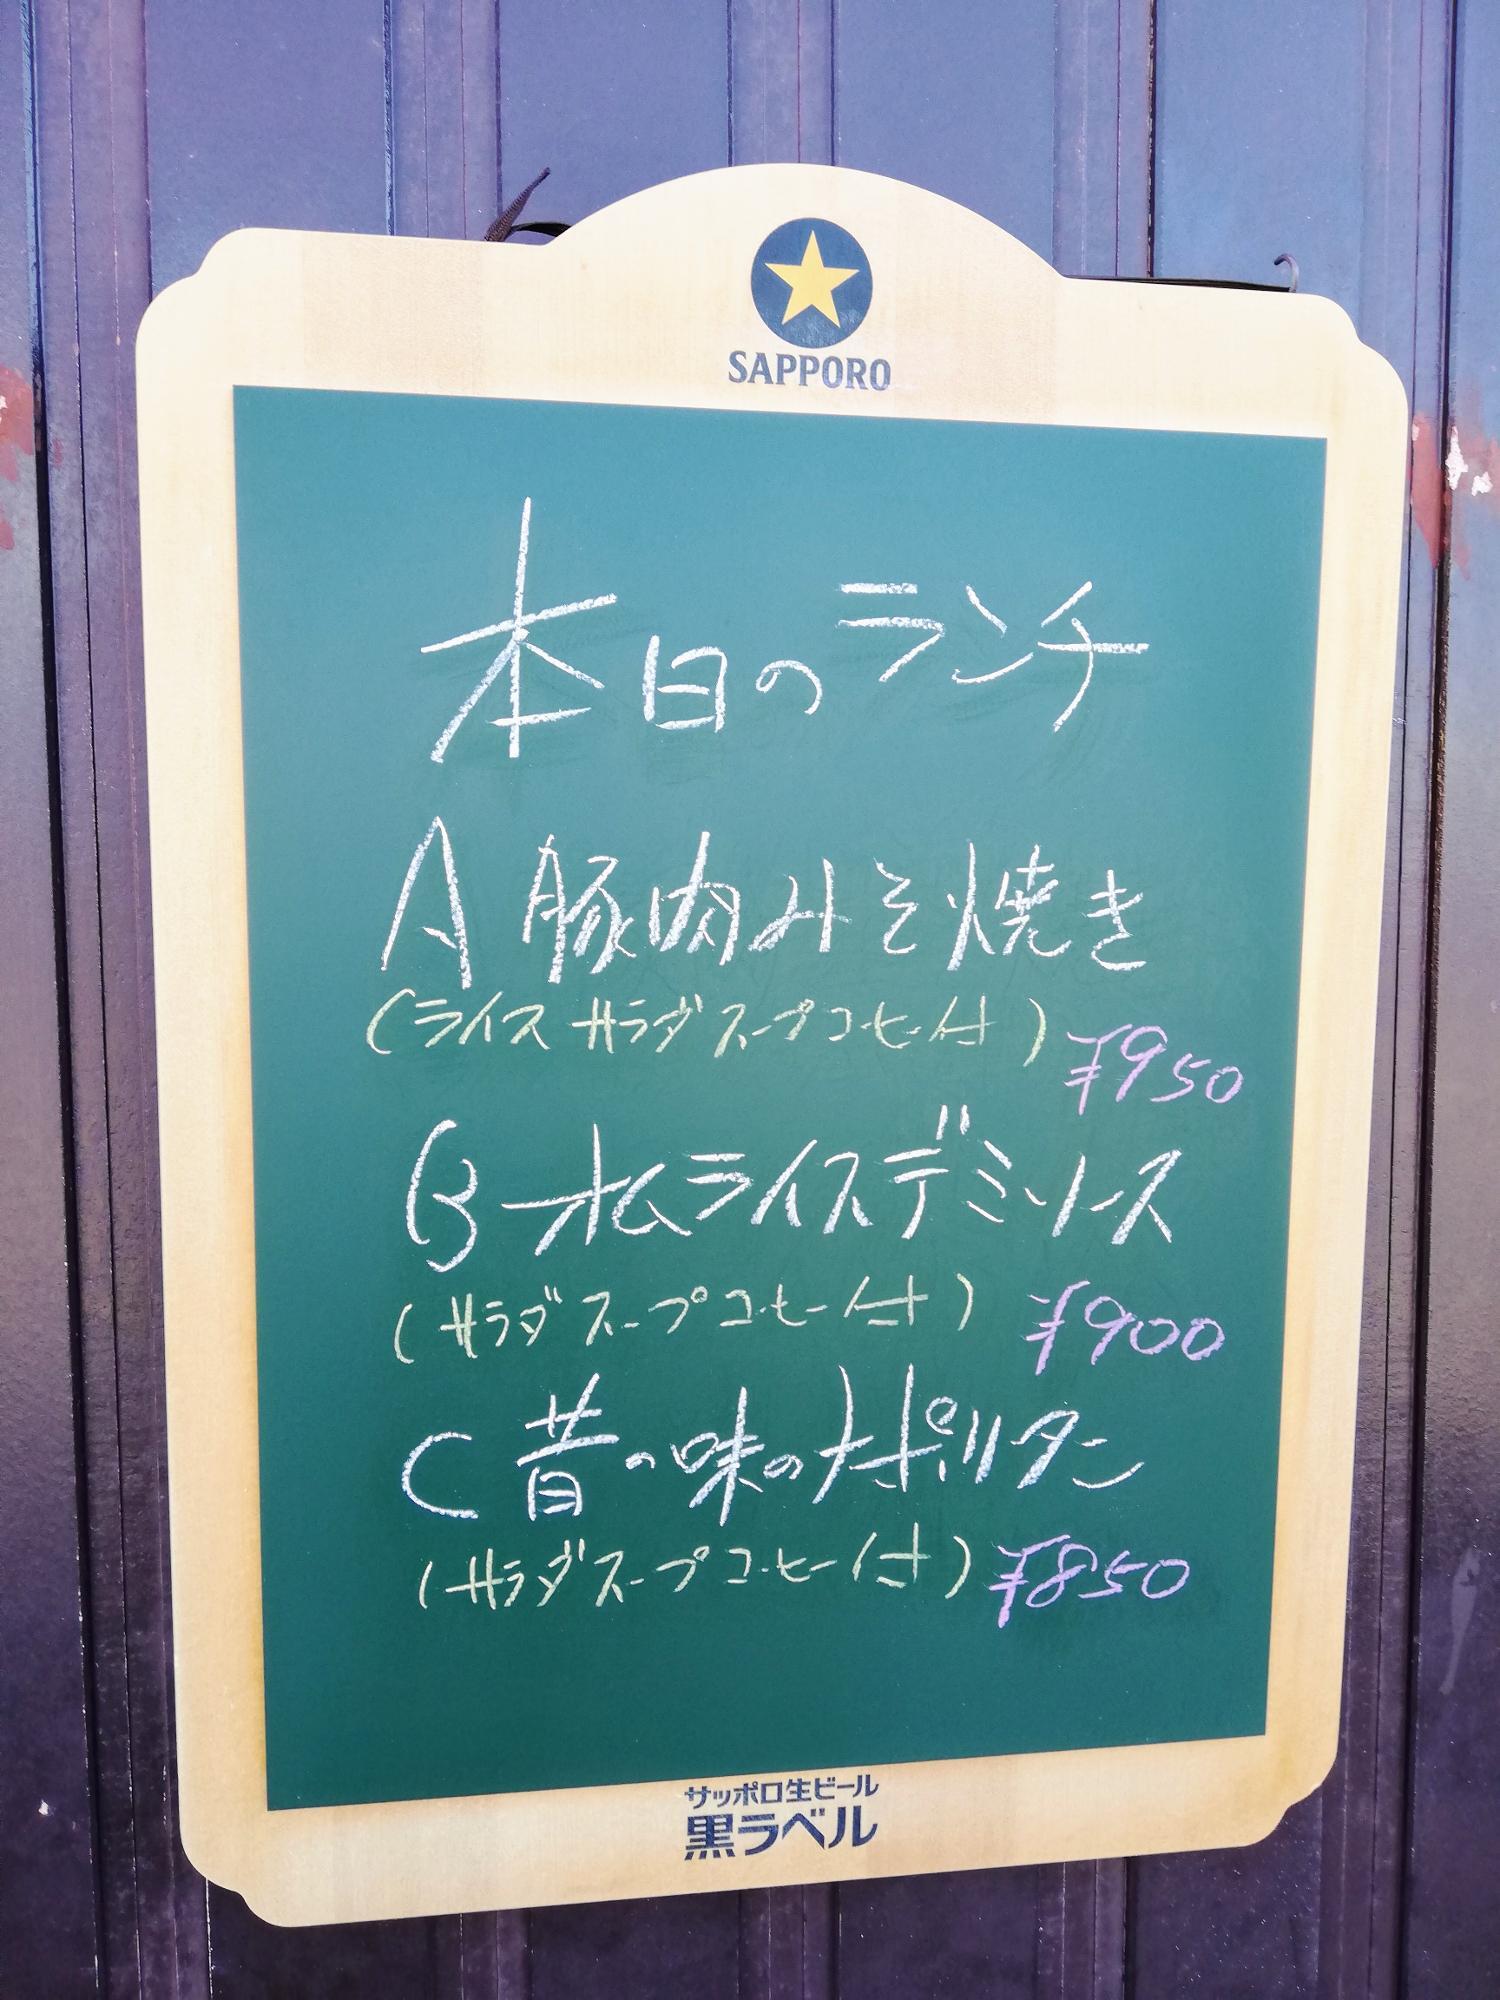 SAPPORO
本日のランチ
A 豚肉みそ焼き
(ライス サラダ スープ コーヒー付)
¥950
B オムライスデミソース
(サラダ スープ コーヒー付)
¥900
C 昔の味のナポリタン
(サラダ スープ コーヒー付)
¥850
サッポロ生ビール
黒ラベル